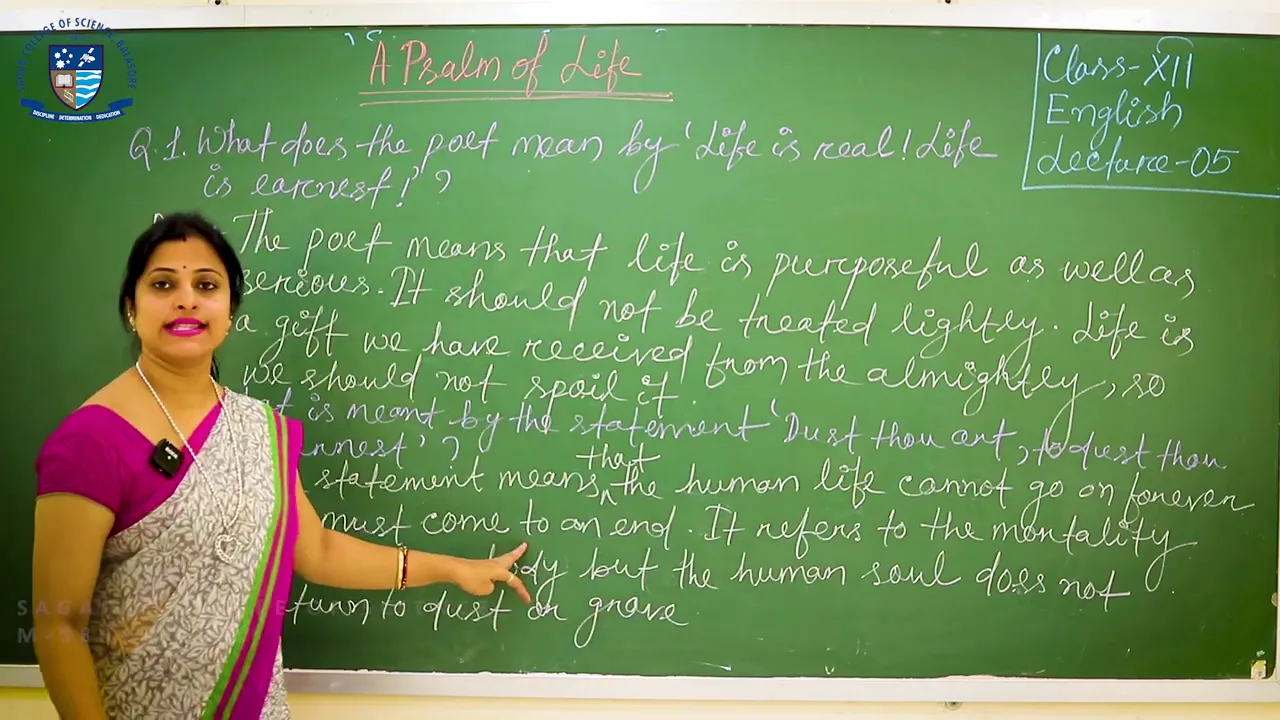 SAGAR COLLEGE OF SCIENCE, BALASORE
DISCIPLINE DETERMINATION DEDICATION
A Psalm of Life
Class-XII
English
Lecture-05
Q.1. What does the poet mean by 'Life is real! Life
is earnest!'?
The poet means that life is purposeful as well as
serious. It should not be treated lightly. Life is
a gift we have received from the almightly, so
we should not spoil it.
is meant by the statement 'Dust thou art, to dust thou
'?
statement means that the human life cannot go on forever
must come to an end. It refers to the mortality
but the human soul does not
to dust or grave